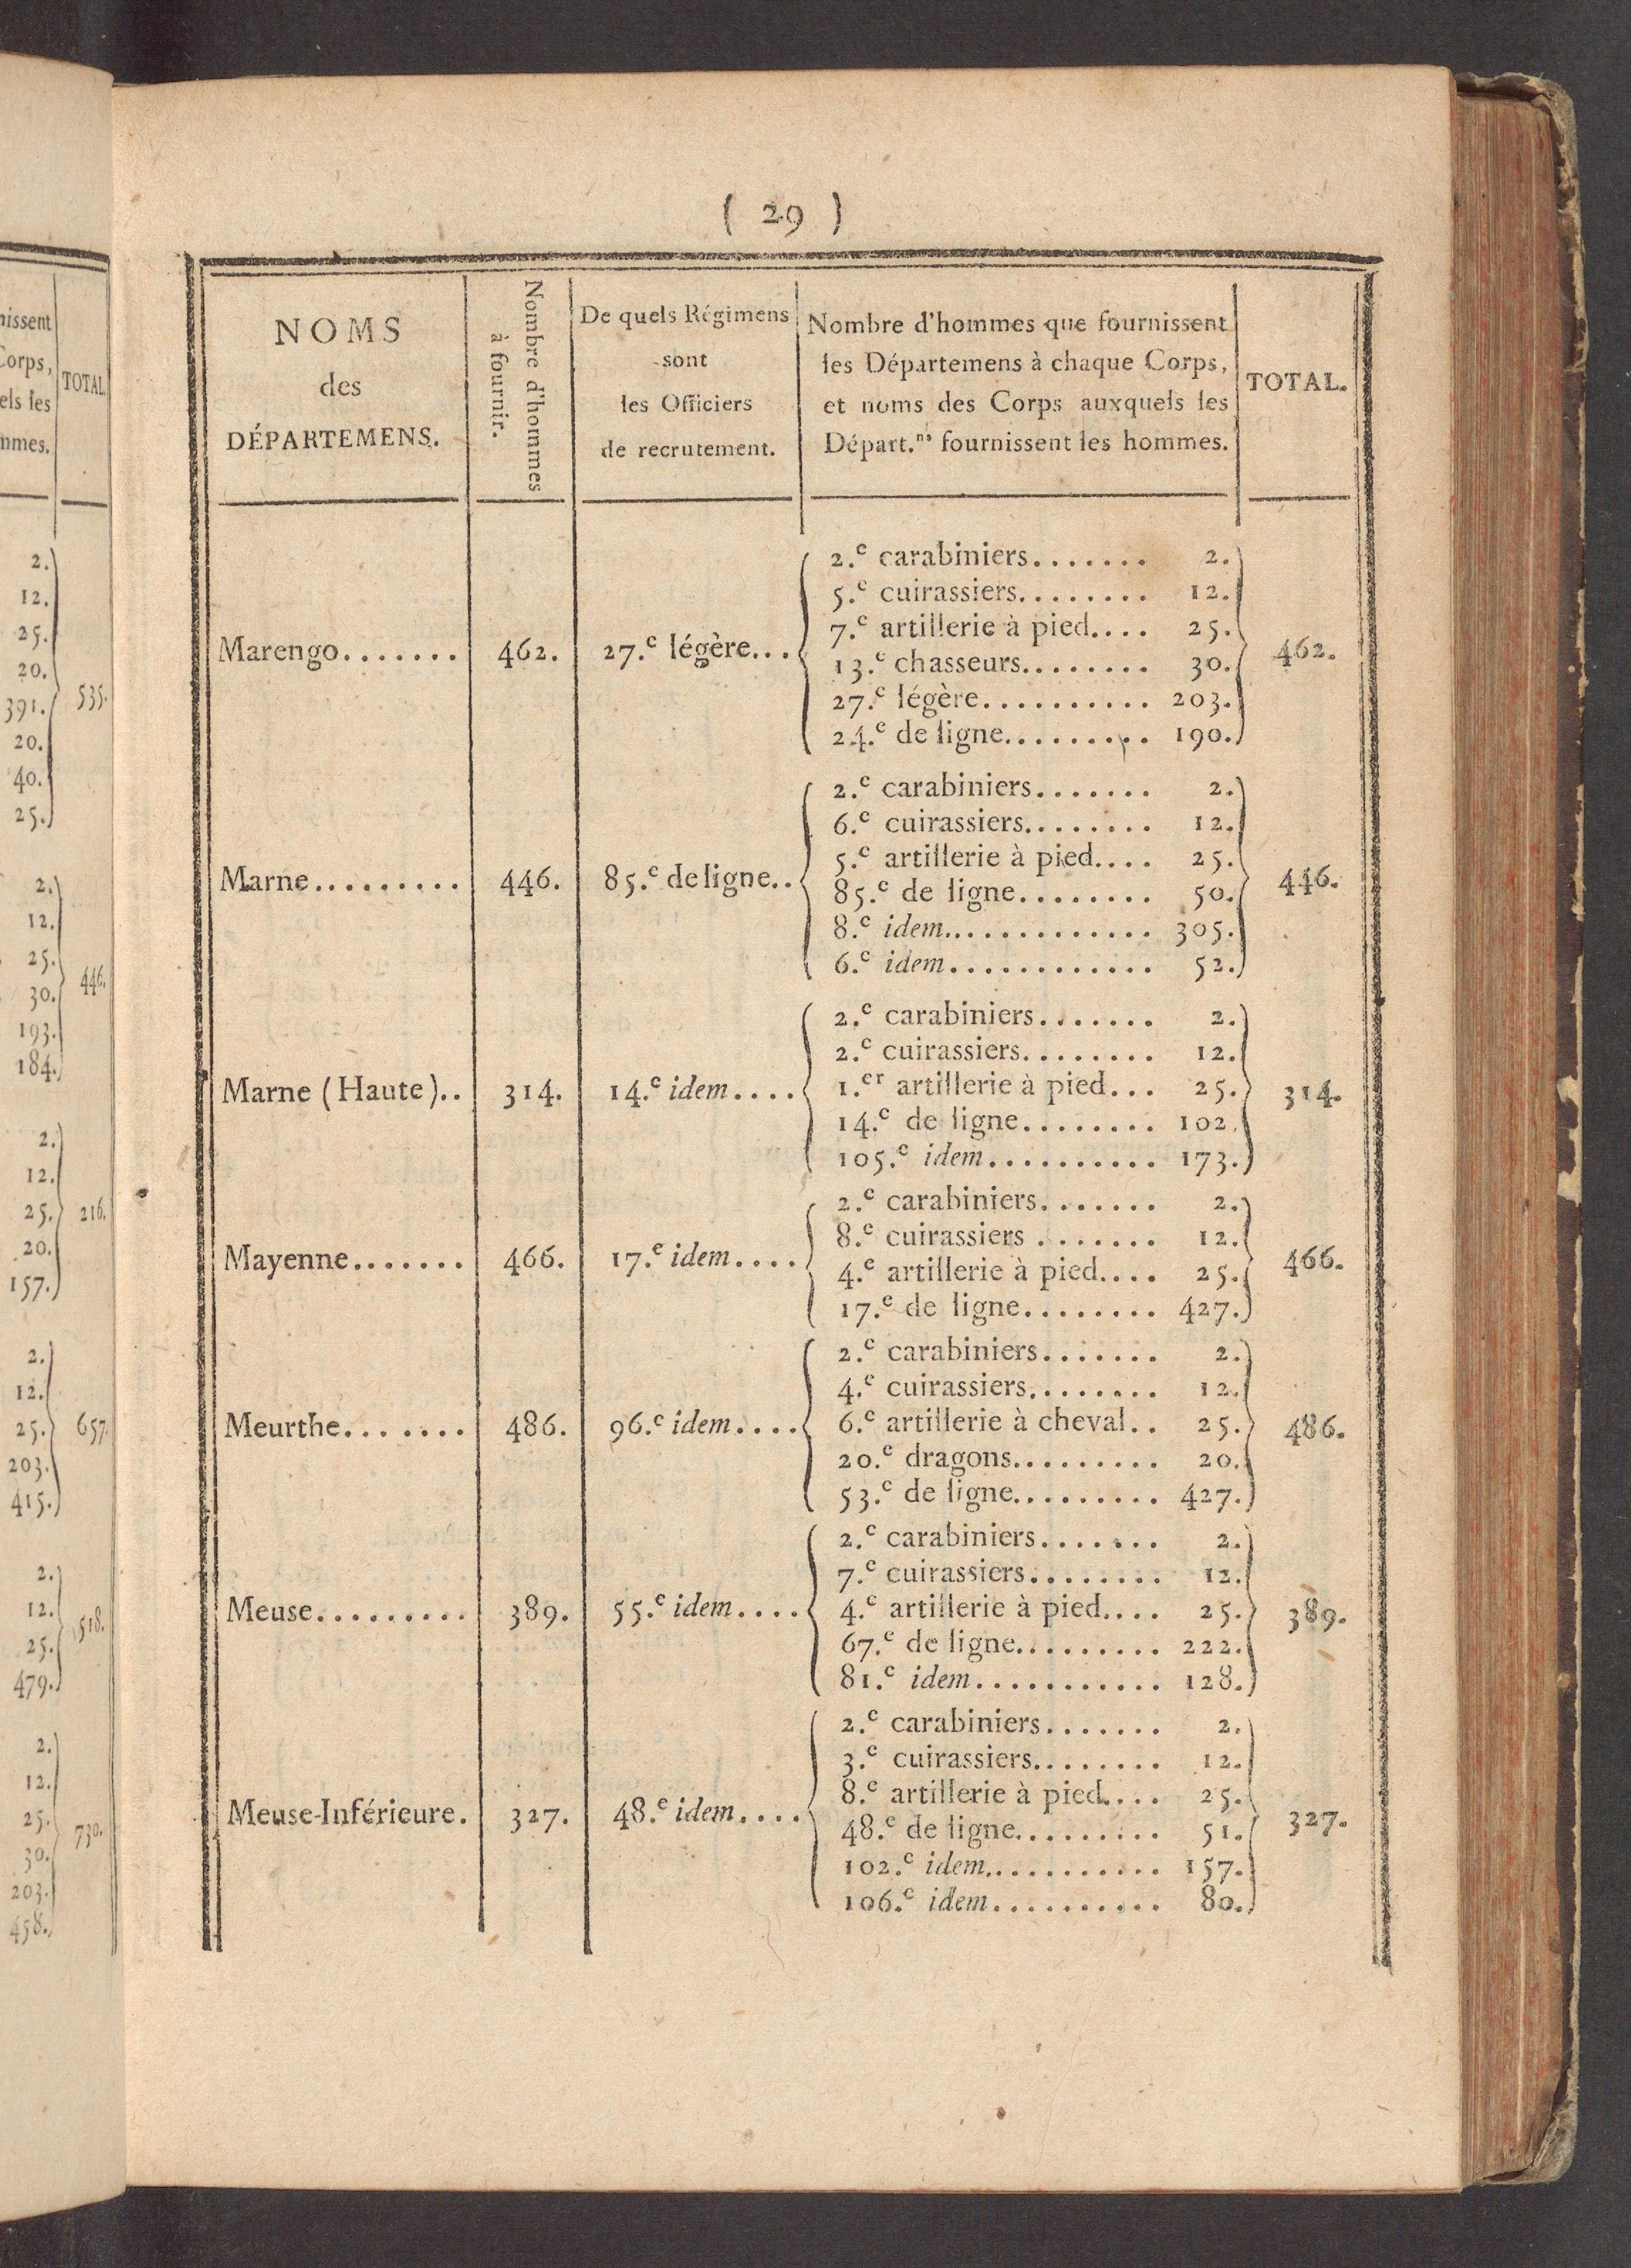 nissent
Corps,
els les
mmes.
TOTAL
2.
12.
25.
20.
391.
20.
40.
25.
535.
2.
12.
25.
30.
193.
184.
446.
2.
12.
25.
20.
157.
216.
2.
12.
25.
203.
415.
657.
2.
12.
25.
479.
518.
2.
12.
25.
30.
203.
458.
730.
( 29 )
NOMS
des
DÉPARTEMENS.
Nombre d'hommes
à fournir.
De quels Régimens
sont
les Officiers
de recrutement.
Nombre d'hommes que fournissent
les Départemens à chaque Corps,
et noms des Corps auxquels les
Départ.ns fournissent les hommes.
TOTAL.
2.e carabiniers....... 2.
5.e cuirassiers........ 12.
7.e artillerie à pied.... 25.
Marengo....... 462. 27.e légère... 462.
13.e chasseurs........ 30.
27.e légère.......... 203.
24.e de ligne......... 190.
2.e carabiniers....... 2.
6.e cuirassiers........ 12.
5.e artillerie à pied.... 25.
Marne......... 446. 85.e de ligne.. 446.
85.e de ligne........ 50.
8.e idem............. 305.
6.e idem............ 52.
2.e carabiniers....... 2.
2.e cuirassiers........ 12.
Marne (Haute).. 314. 14.e idem.... 1.er artillerie à pied... 25. 314.
14.e de ligne........ 102.
105.e idem.......... 173.
2.e carabiniers....... 2.
8.e cuirassiers ....... 12.
Mayenne....... 466. 17.e idem.... 466.
4.e artillerie à pied.... 25.
17.e de ligne........ 427.
2.e carabiniers....... 2.
4.e cuirassiers........ 12.
Meurthe....... 486. 96.e idem.... 6.e artillerie à cheval.. 25. 486.
20.e dragons......... 20.
53.e de ligne......... 427.
2.e carabiniers....... 2.
7.e cuirassiers........ 12.
Meuse......... 389. 55.e idem.... 4.e artillerie à pied.... 25. 389.
67.e de ligne......... 222.
81.e idem........... 128.
2.e carabiniers....... 2.
3.e cuirassiers........ 12.
8.e artillerie à pied.... 25.
Meuse-Inférieure. 327. 48.e idem.... 327.
48.e de ligne......... 51.
102.e idem........... 157.
106.e idem.......... 80.